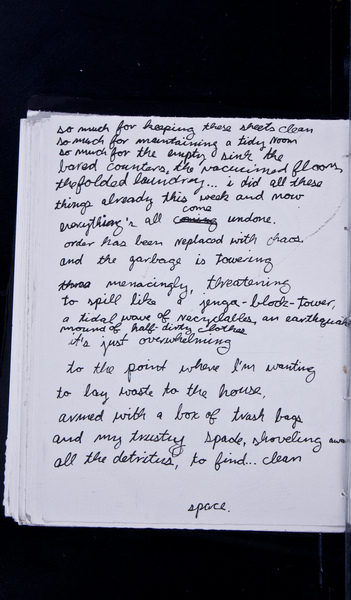 so much for keeping these sheets clean
so much for maintaining a tidy room
so much for the empty sink the
bared counters, the vacuumed floors,
the folded laundry... i did all these
things already this week and now
everything's all come undone.
order has been replaced with chaos
and the garbage is towering
menacingly, threatening
to spill like a jenga-block-tower,
a tidal wave of recyclables, an earthquake
mound of half dirty clothes
it's just overwhelming
to the point where I'm wanting
to lay waste to the house,
armed with a box of trash bags
and my trusty spade, shoveling away
all the detritus, to find... clean
space.